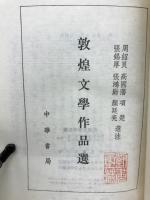 周紹良 高國藩 項楚
張錫厚 張鴻勳 顏廷亮 選注
敦煌文學作品選
中華書局